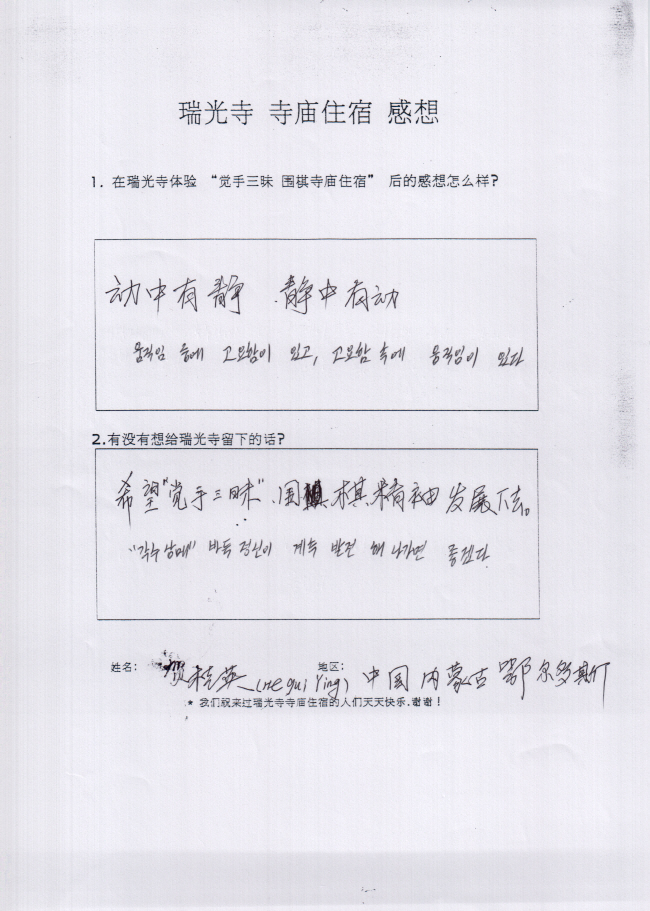 瑞光寺 寺庙住宿 感想
1. 在瑞光寺体验 “觉手三昧 围棋寺庙住宿” 后的感想怎么样?
动中有静 .静中有动
움직임 중에 고요함이 있고, 고요함 속에 움직임이 있다
2.有没有想给瑞光寺留下的话?
希望"觉手三昧".围棋.精神发展下去。
"각수삼매" 바둑 정신이 계속 발전 해 나가면 좋겠다.
姓名: 贺桂英(He gui Ying) 地区: 中国内蒙古鄂尔多斯
* 我们祝来过瑞光寺寺庙住宿的人们天天快乐.谢谢!